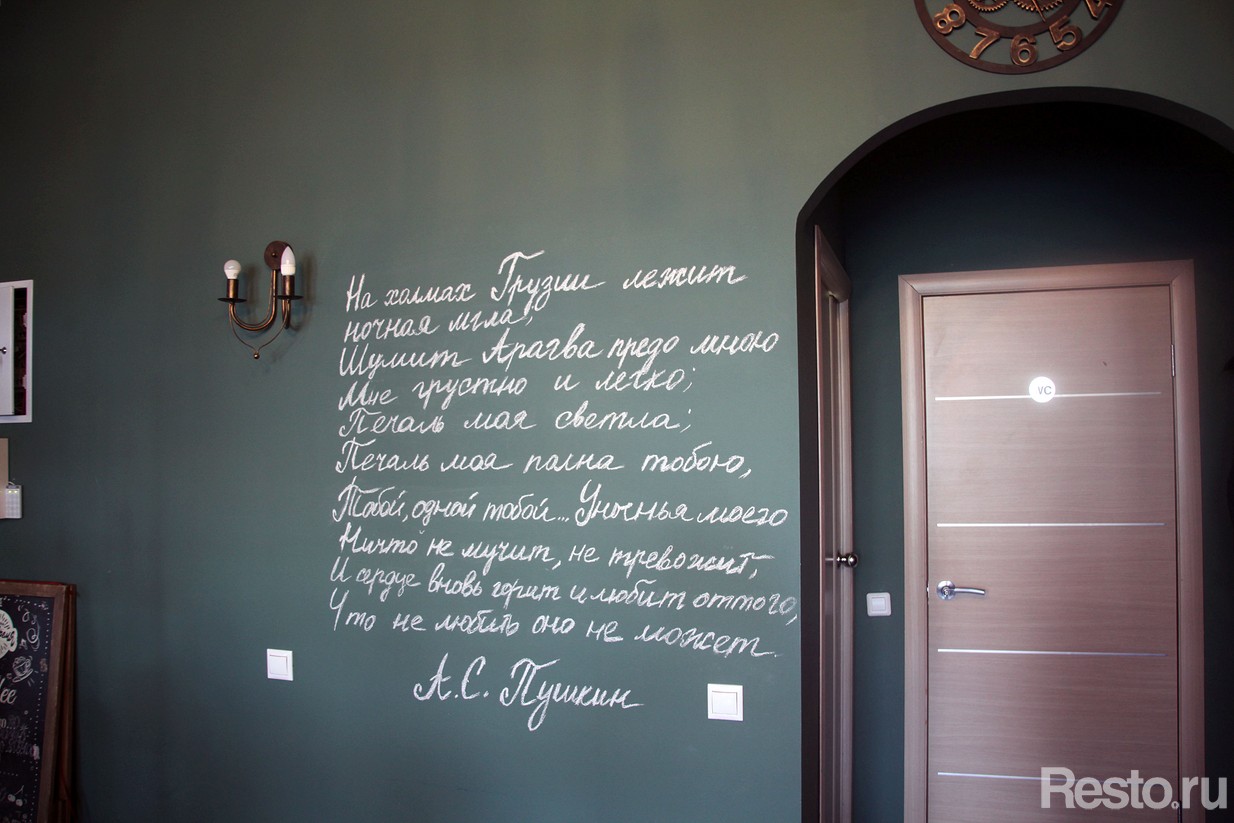 8 7 6 5 4
На холмах Грузии лежит
ночная мгла;
Шумит Арагва предо мною
Мне грустно и легко;
Печаль моя светла;
Печаль моя полна тобою,
Тобой, одной тобой... Унынья моего
Ничто не мучит, не тревожит,
И сердце вновь горит и любит оттого,
Что не любить оно не может.
А.С. Пушкин
VC
Resto.ru